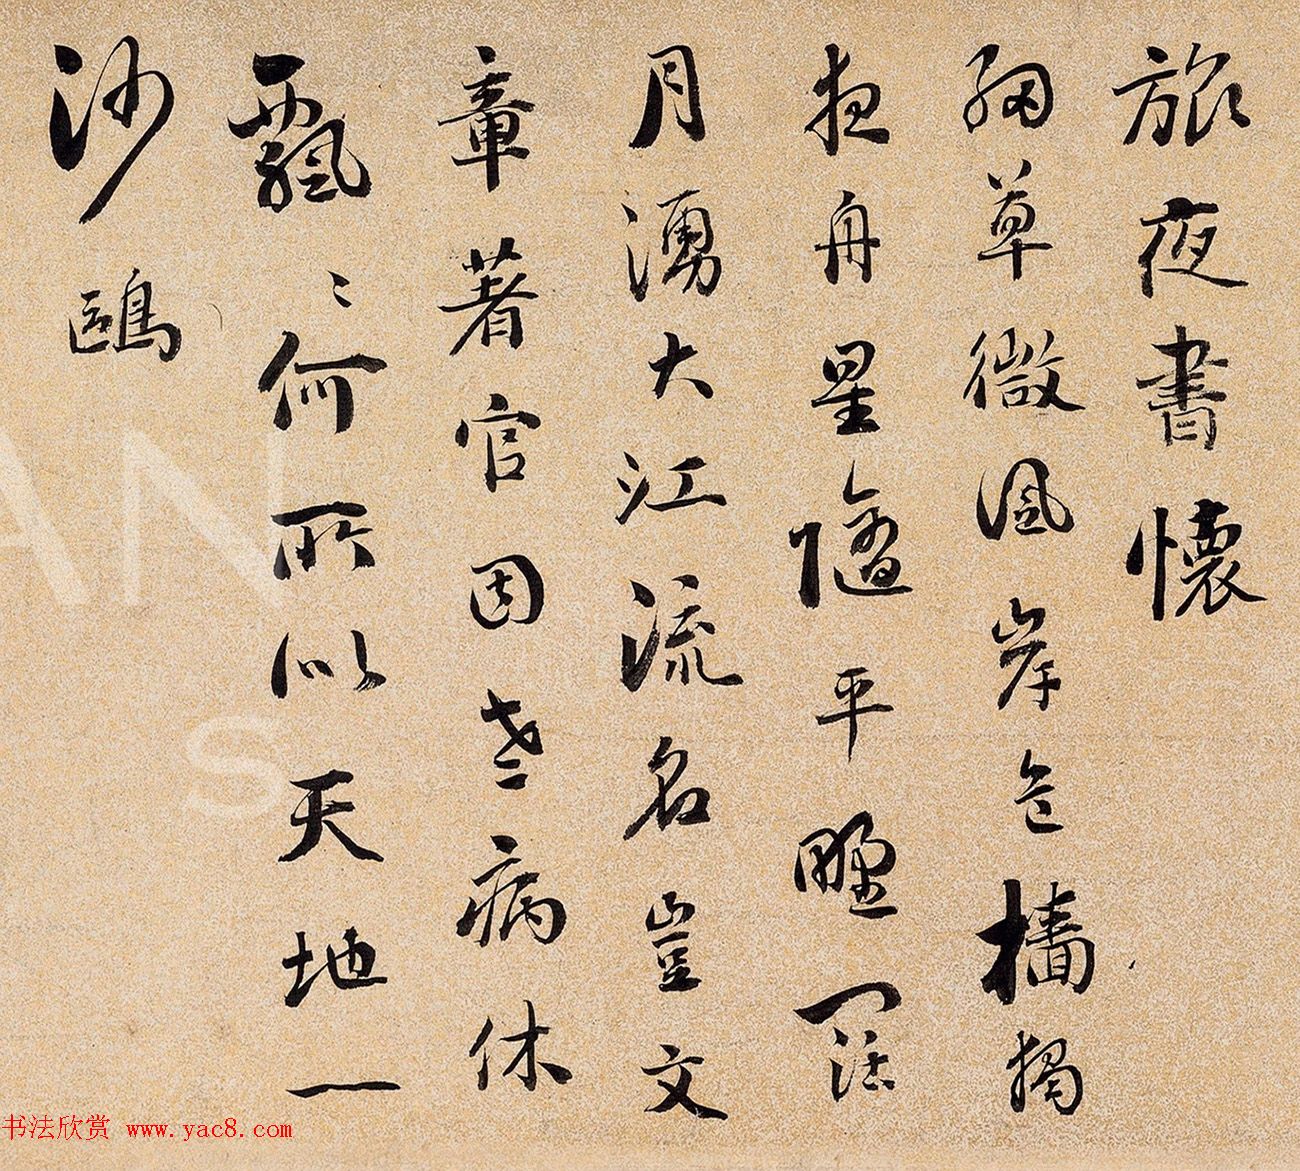 旅夜書懷
細草微風岸危檣獨
夜舟星隨平野闊
月湧大江流名豈文
章著官因老病休
飄〻何所似天地一
沙鷗
书法欣赏 www.yac8.com